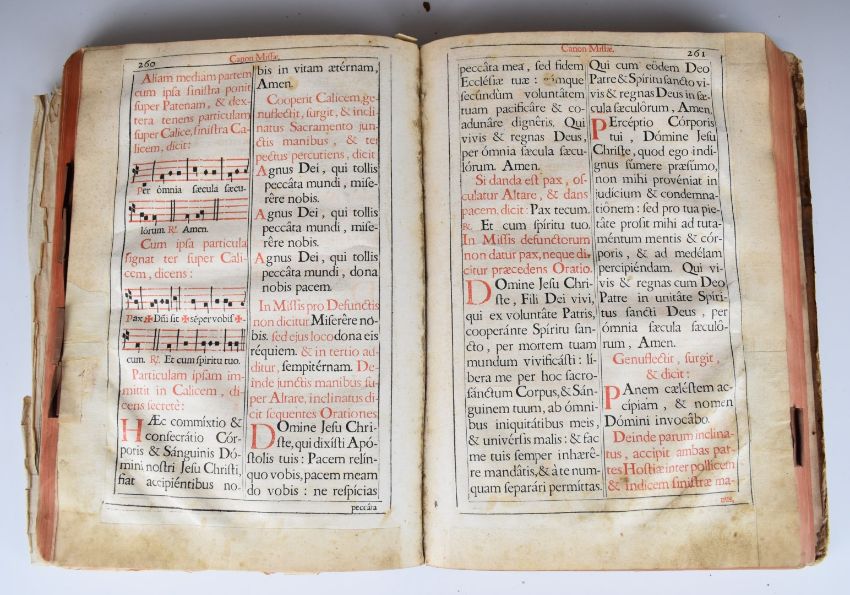 260
Canon Missæ.
Aliam mediam partem
cum ipsa sinistra ponit
super Patenam, & dex-
tera tenens particulam
super Calice, sinistra Ca-
licem, dicit:
Per ómnia sæcula sæcu-
lórum. ℟. Amen.
Cum ipsa particula
signat ter super Cali-
cem, dicens:
Pax ✠ Dñi sit ✠ sẽper vobis ✠
cum. ℟. Et cum spiritu tuo.
Particulam ipsam im-
mittit in Calicem, di-
cens secretè:
HÆc commixtio &
consecrátio Cór-
poris & Sánguinis Dó-
mini nostri Jesu Christi,
fiat accipiéntibus no-
bis in vitam ætérnam,
Amen.
Cooperit Calicem, ge-
nuflectit, surgit, & incli-
natus Sacramento jun-
ctis manibus, & ter
pectus percutiens, dicit
Agnus Dei, qui tollis
peccâta mundi, mise-
rêre nobis.
Agnus Dei, qui tollis
peccâta mundi, mise-
rêre nobis.
Agnus Dei, qui tollis
peccâta mundi, dona
nobis pacem.
In Missis pro Defunctis
non dicitur Miserêre no-
bis. sed ejus loco dona eis
réquiem. & in tertio ad-
ditur, sempitérnam. De-
inde junctis manibus su-
per Altare, inclinatus di-
cit sequentes Orationes.
DOmine Jesu Chri-
ste, qui dixísti Apó-
stolis tuis: Pacem relín-
quo vobis, pacem meam
do vobis: ne respícias
peccáta
Canon Missæ.
261
peccâta mea, sed fidem
Ecclésiæ tuæ: eámque
secundùm voluntátem
tuam pacificâre & co-
adunâre dignêris. Qui
vivis & regnas Deus,
per ómnia sæcula sæcu-
lórum. Amen.
Si danda est pax, os-
culatur Altare, & dans
pacem, dicit: Pax tecum.
℟. Et cum spíritu tuo.
In Missis defunctorum
non datur pax, neque di-
citur præcedens Oratio.
DOmine Jesu Chri-
ste, Fili Dei vivi,
qui ex voluntáte Patris,
cooperánte Spíritu san-
cto, per mortem tuam
mundum vivificásti: lí-
bera me per hoc sacro-
sánctum Corpus, & Sán-
guinem tuum, ab ómni-
bus iniquitátibus meis,
& univérsis malis: & fac
me tuis semper inhærê-
re mandátis, & à te num-
quam separári permíttas.
Qui cum eôdem Deo
Patre & Spíritu sancto vi-
vis & regnas Deus in sæ-
cula sæculórum, Amen.
PErcéptio Córporis
tui, Dómine Jesu
Christe, quod ego indi-
gnus súmere præsúmo,
non mihi provéniat in
judícium & condemna-
tiônem: sed pro tua pie-
tâte prosit mihi ad tuta-
méntum mentis & cór-
poris, & ad medélam
percipiéndam. Qui vi-
vis & regnas cum Deo
Patre in unitâte Spíri-
tus sancti Deus, per
ómnia sæcula sæculô-
rum, Amen.
Genuflectit, surgit,
& dicit:
PAnem cæléstem ac-
cípiam, & nomen
Dómini invocâbo.
Deinde parum inclina-
tus, accipit ambas par-
tes Hostiæ inter pollicem
& indicem sinistræ ma-
nus,